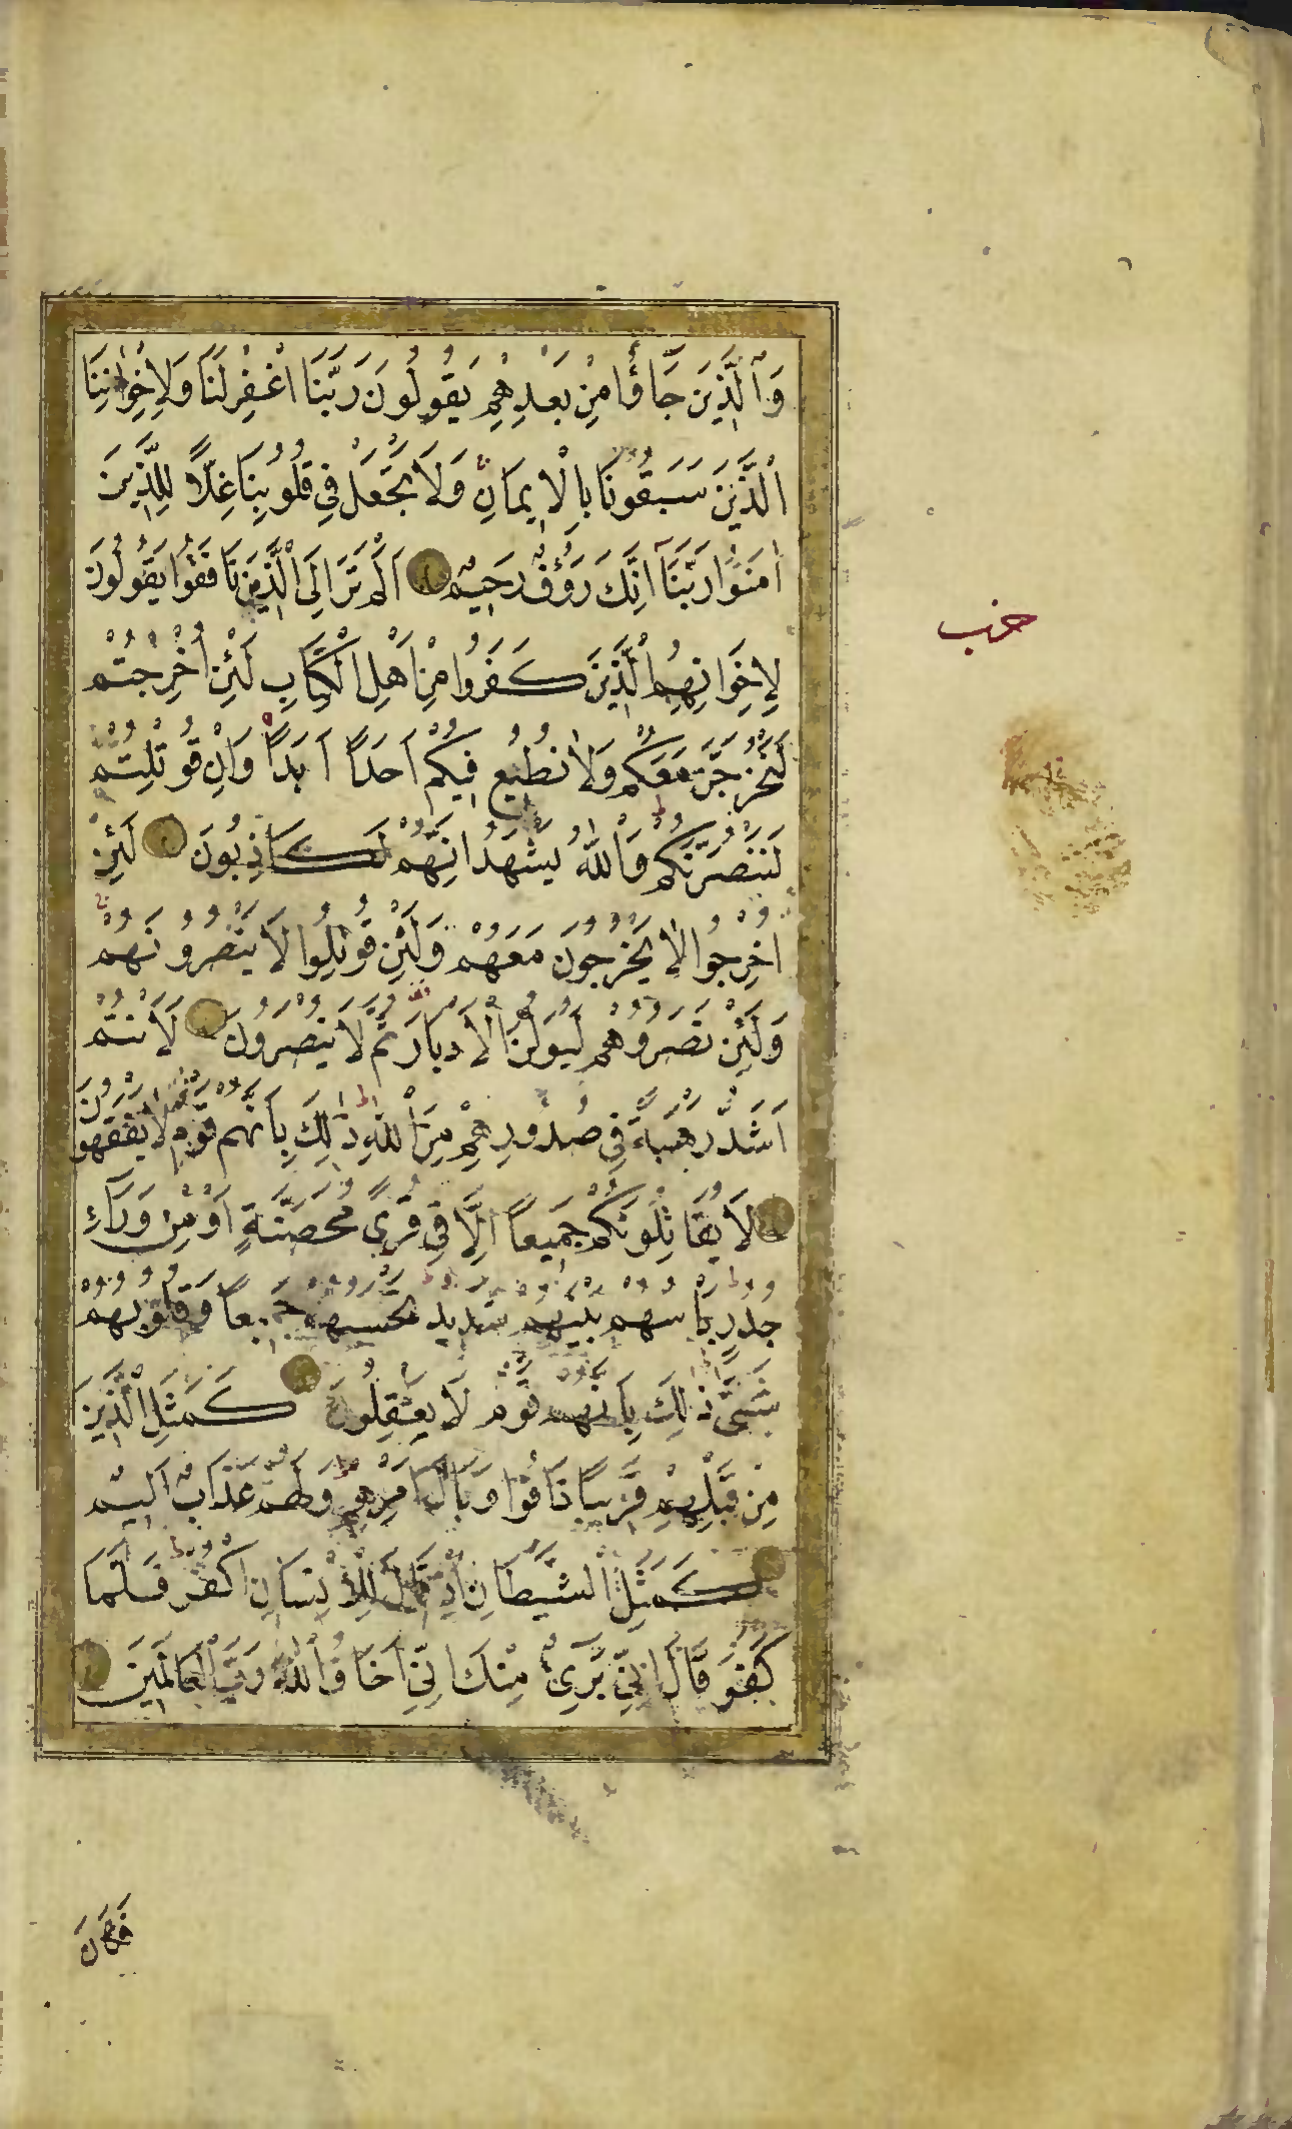 وَالَّذِينَ جَاؤُا مِنْ بَعْدِهِمْ يَقُولُونَ رَبَّنَا اغْفِرْ لَنَا وَلِإِخْوَانِنَا
الَّذِينَ سَبَقُونَا بِالْإِيمَانِ وَلَا تَجْعَلْ فِي قُلُوبِنَا غِلًّا لِلَّذِينَ
اٰمَنُوا رَبَّنَا اِنَّكَ رَؤُفٌ رَحِيمٌ اَلَمْ تَرَ اِلَى الَّذِينَ نَافَقُوا يَقُولُونَ
لِإِخْوَانِهِمُ الَّذِينَ كَفَرُوا مِنْ اَهْلِ الْكِتَابِ لَئِنْ اُخْرِجْتُمْ
حزب
لَنَخْرُجَنَّ مَعَكُمْ وَلَا نُطِيعُ فِيكُمْ اَحَدًا اَبَدًا وَاِنْ قُوتِلْتُمْ
لَنَنْصُرَنَّكُمْ وَاللّٰهُ يَشْهَدُ اِنَّهُمْ لَكَاذِبُونَ لَئِنْ
اُخْرِجُوا لَا يَخْرُجُونَ مَعَهُمْ وَلَئِنْ قُوتِلُوا لَا يَنْصُرُونَهُمْ
وَلَئِنْ نَصَرُوهُمْ لَيُوَلُّنَّ الْاَدْبَارَ ثُمَّ لَا يُنْصَرُونَ لَاَنْتُمْ
اَشَدُّ رَهْبَةً فِي صُدُورِهِمْ مِنَ اللّٰهِ ذٰلِكَ بِاَنَّهُمْ قَوْمٌ لَا يَفْقَهُونَ
لَا يُقَاتِلُونَكُمْ جَمِيعًا اِلَّا فِي قُرًى مُحَصَّنَةٍ اَوْ مِنْ وَرَاءِ
جُدُرٍ بَأْسُهُمْ بَيْنَهُمْ شَدِيدٌ تَحْسَبُهُمْ جَمِيعًا وَقُلُوبُهُمْ
شَتَّى ذٰلِكَ بِاَنَّهُمْ قَوْمٌ لَا يَعْقِلُونَ كَمَثَلِ الَّذِينَ
مِنْ قَبْلِهِمْ قَرِيبًا ذَاقُوا وَبَالَ اَمْرِهِمْ وَلَهُمْ عَذَابٌ اَلِيمٌ
كَمَثَلِ الشَّيْطَانِ اِذْ قَالَ لِلْاِنْسَانِ اكْفُرْ فَلَمَّا
كَفَرَ قَالَ اِنِّي بَرِيءٌ مِنْكَ اِنِّي اَخَافُ اللّٰهَ رَبَّ الْعَالَمِينَ
فَكَانَ